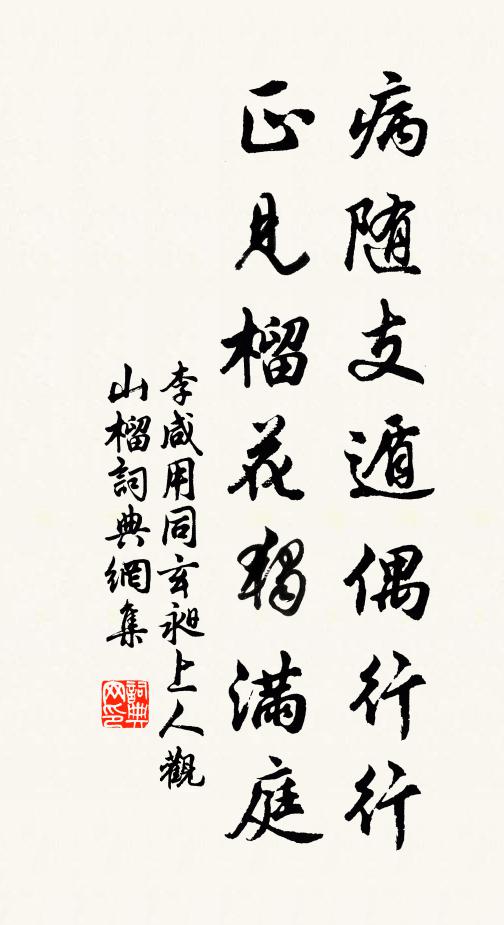 病随支遁偶行行
正见榴花独满庭
李咸用同玄昶上人觀
山榴詞典網集
詞典网印